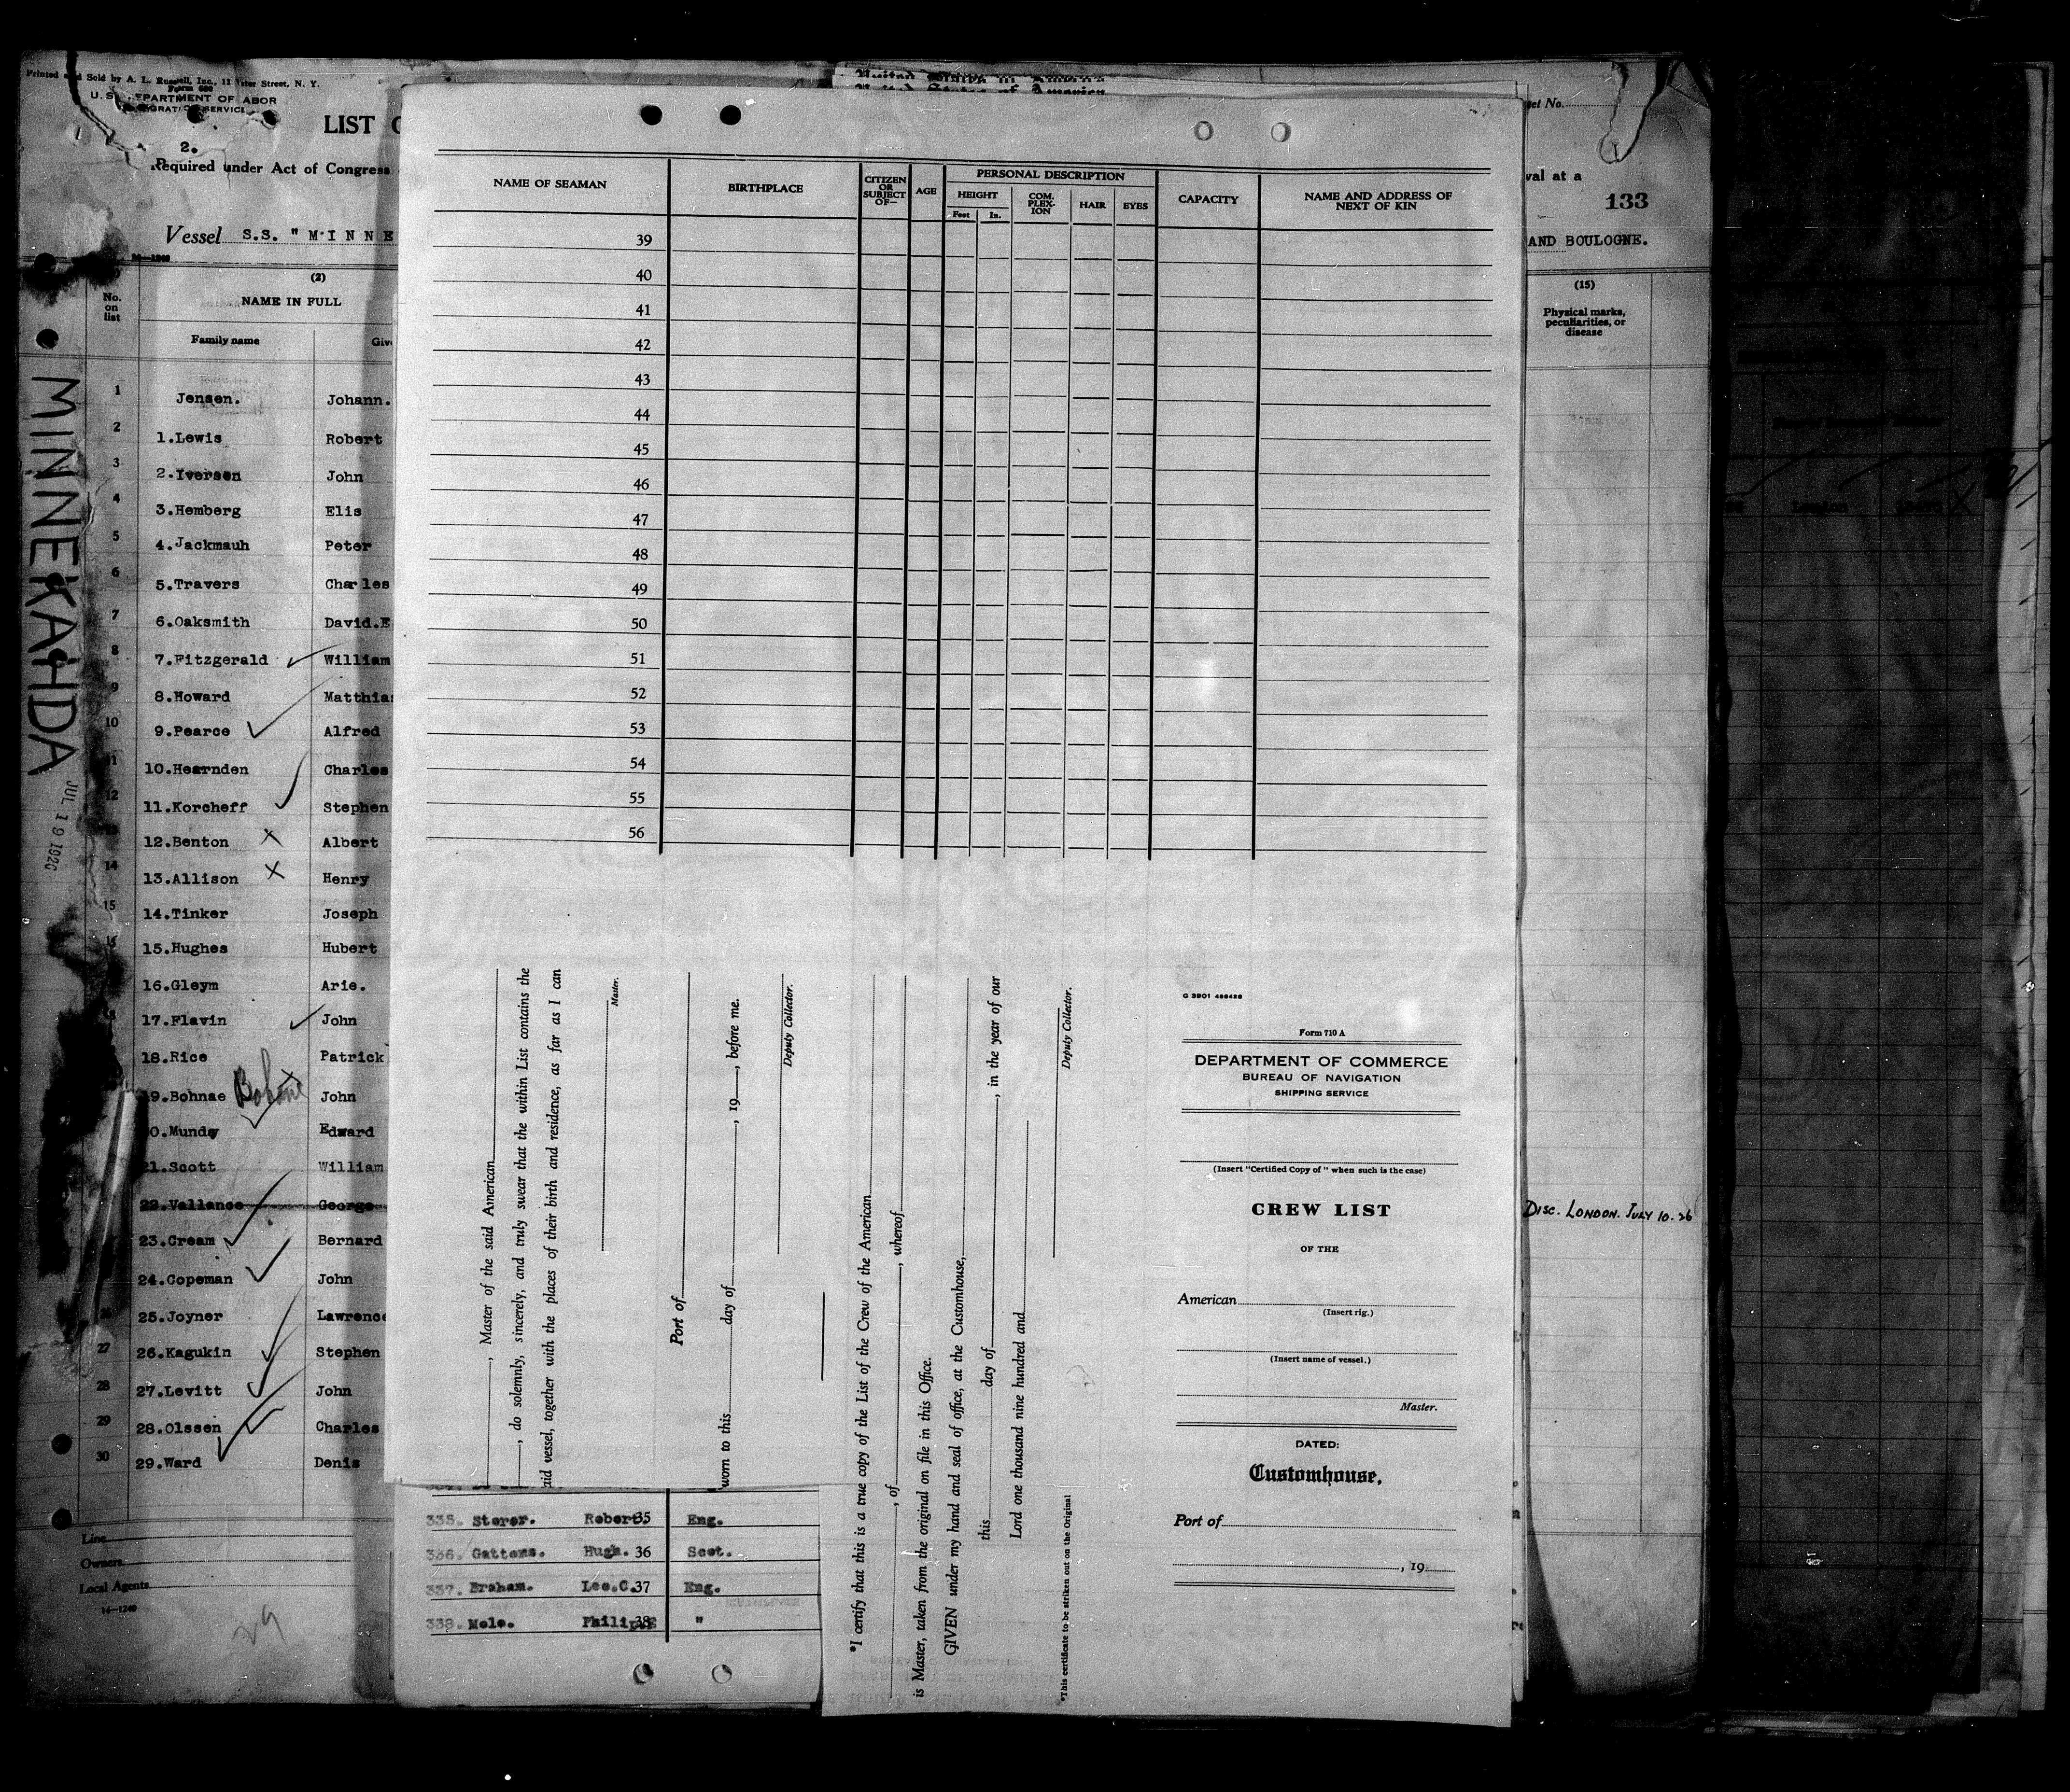 Printed and Sold by A. L. Russell, Inc., 12 Water Street, N. Y.
Form 680
U. S. DEPARTMENT OF LABOR
IMMIGRATION SERVICE
LIST O
2.
Required under Act of Congress
Vessel S.S. "MINNE
(2)
No. on list
NAME IN FULL
Family name Give
1 Jensen. Johann.
2 1.Lewis Robert
3 2.Iversen John
4 3.Hemberg Elis
5 4.Jackmauh Peter
6 5.Travers Charles
7 6.Oaksmith David.E
8 7.Fitzgerald William
9 8.Howard Matthias
10 9.Pearce Alfred
11 10.Hearnden Charles
12 11.Korcheff Stephen
13 12.Benton X Albert
14 13.Allison X Henry
15 14.Tinker Joseph
16 15.Hughes Hubert
16.Gleym Arie.
18 17.Flavin John
18.Rice Patrick
19.Bohnae Bohne John
0.Munday Edward
21.Scott William
22.Vallance George
23.Cream Bernard
24.Copeman John
26 25.Joyner Lawrence
27 26.Kagukin Stephen
28 27.Levitt John
29 28.Olssen Charles
30 29.Ward Denis
Line
Owners
Local Agents
16—1240
29
MINNEKAHDA
JUL 19 1926
United States of America
NAME OF SEAMAN
BIRTHPLACE
CITIZEN OR SUBJECT OF—
AGE
PERSONAL DESCRIPTION
HEIGHT
Feet In.
COM-PLEX-ION
HAIR
EYES
CAPACITY
NAME AND ADDRESS OF NEXT OF KIN
39
40
41
42
43
44
45
46
47
48
49
50
51
52
53
54
55
56
, Master of the said American
, do solemnly, sincerely, and truly swear that the within List contains the
aid vessel, together with the places of their birth and residence, as far as I can
Master.
Port of
worn to this day of , 19 , before me.
Deputy Collector.
*I certify that this is a true copy of the List of the Crew of the American
, of , whereof
is Master, taken from the original on file in this Office.
GIVEN under my hand and seal of office, at the Customhouse,
this day of , in the year of our
Lord one thousand nine hundred and
Deputy Collector.
*This certificate to be striken out on the Original
G 3901 466426
Form 710 A
DEPARTMENT OF COMMERCE
BUREAU OF NAVIGATION
SHIPPING SERVICE
(Insert "Certified Copy of" when such is the case)
CREW LIST
OF THE
American
(Insert rig.)
(Insert name of vessel.)
Master.
DATED:
Customhouse,
Port of
, 19
335. Storer. Robert. 35 Eng.
336. Gattens. Hugh. 36 Scot.
337. Braham. Leo.C. 37 Eng.
338. Mole. Philip 38 "
Sheet No.
val at a
133
AND BOULOGNE.
(15)
Physical marks, peculiarities, or disease
DISC. LONDON. JULY 10.26
London